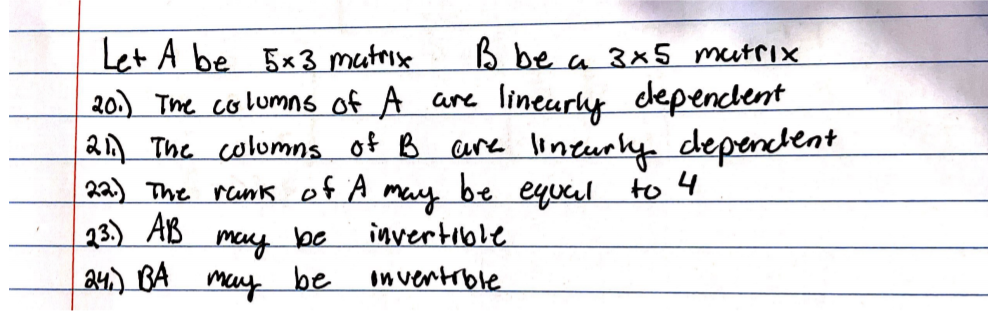 Let A be 5x3 matrix B be a 3x5 matrix
20.) The columns of A are linearly dependent
21.) The columns of B are linearly dependent
22.) The rank of A may be equal to 4
23.) AB may be invertible
24.) BA may be invertible